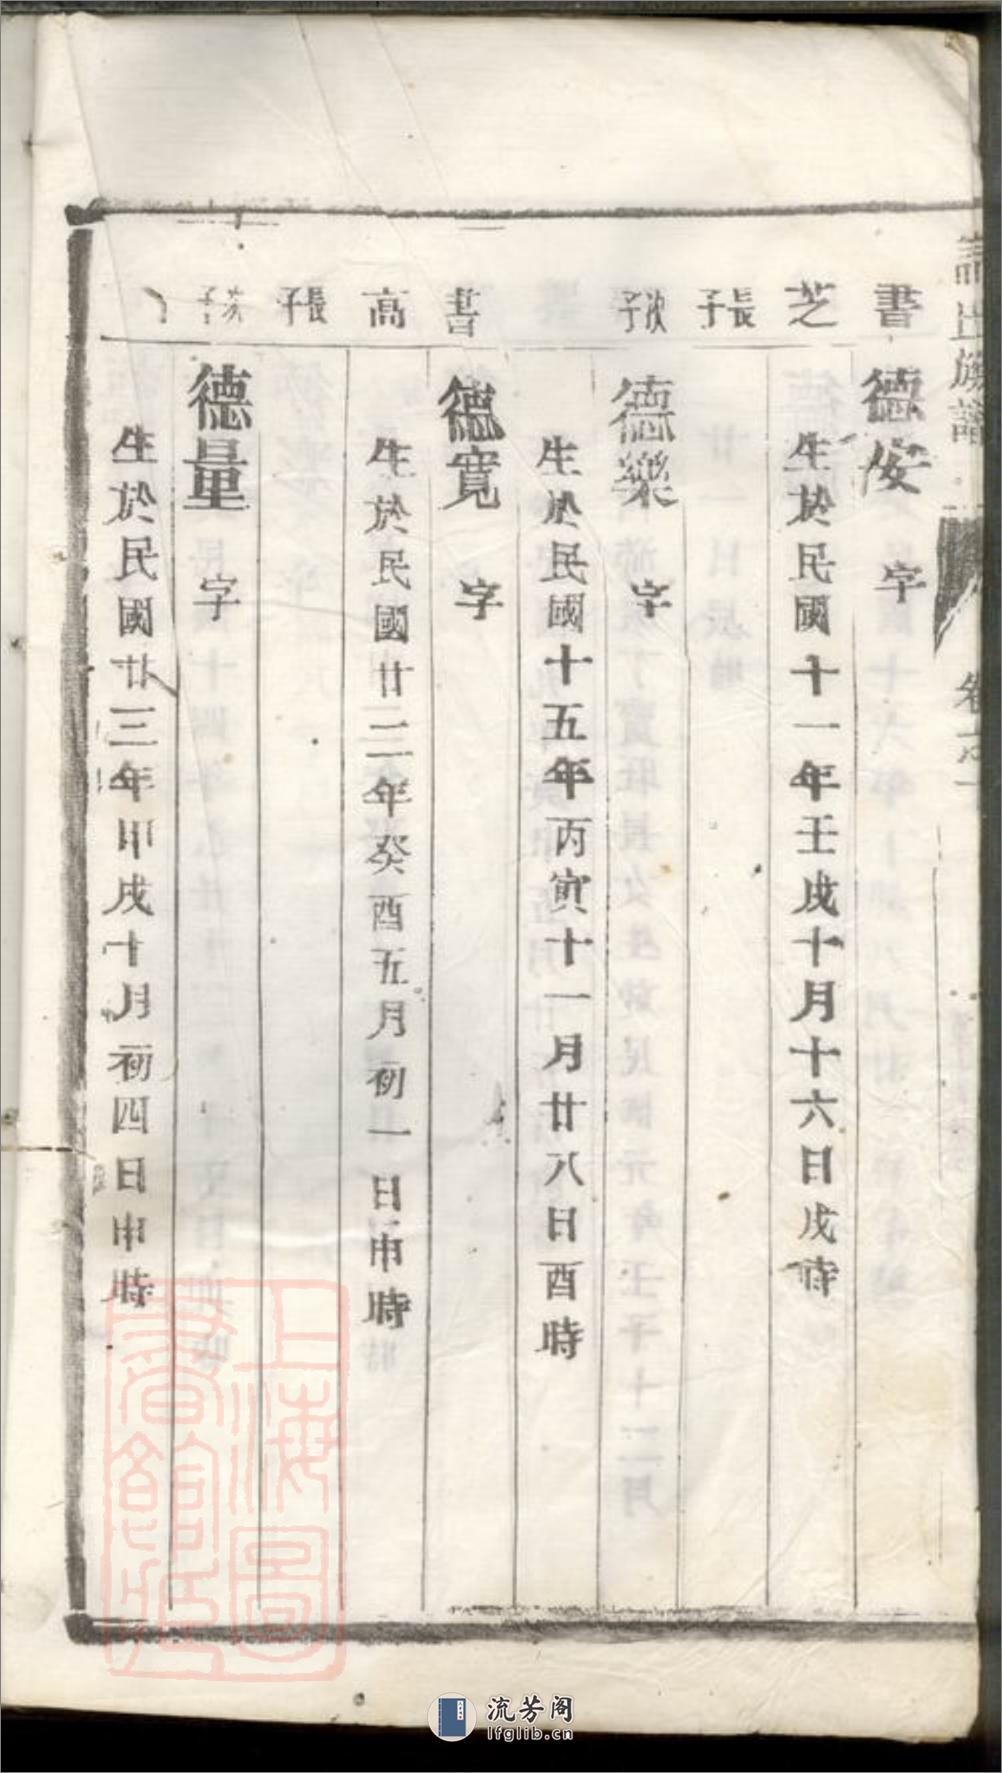 族譜
書
德安 字
芝
生於民國十一年壬戌十月十六日戌時
長子
次子
德樂 字
生於民國十五年丙寅十一月廿八日酉時
書
德寬 字
高
生於民國廿二年癸酉五月初一日申時
長子
次子
德量 字
生於民國廿三年甲戌十月初四日申時
上海圖書館藏
流芳阁
lfglib.cn